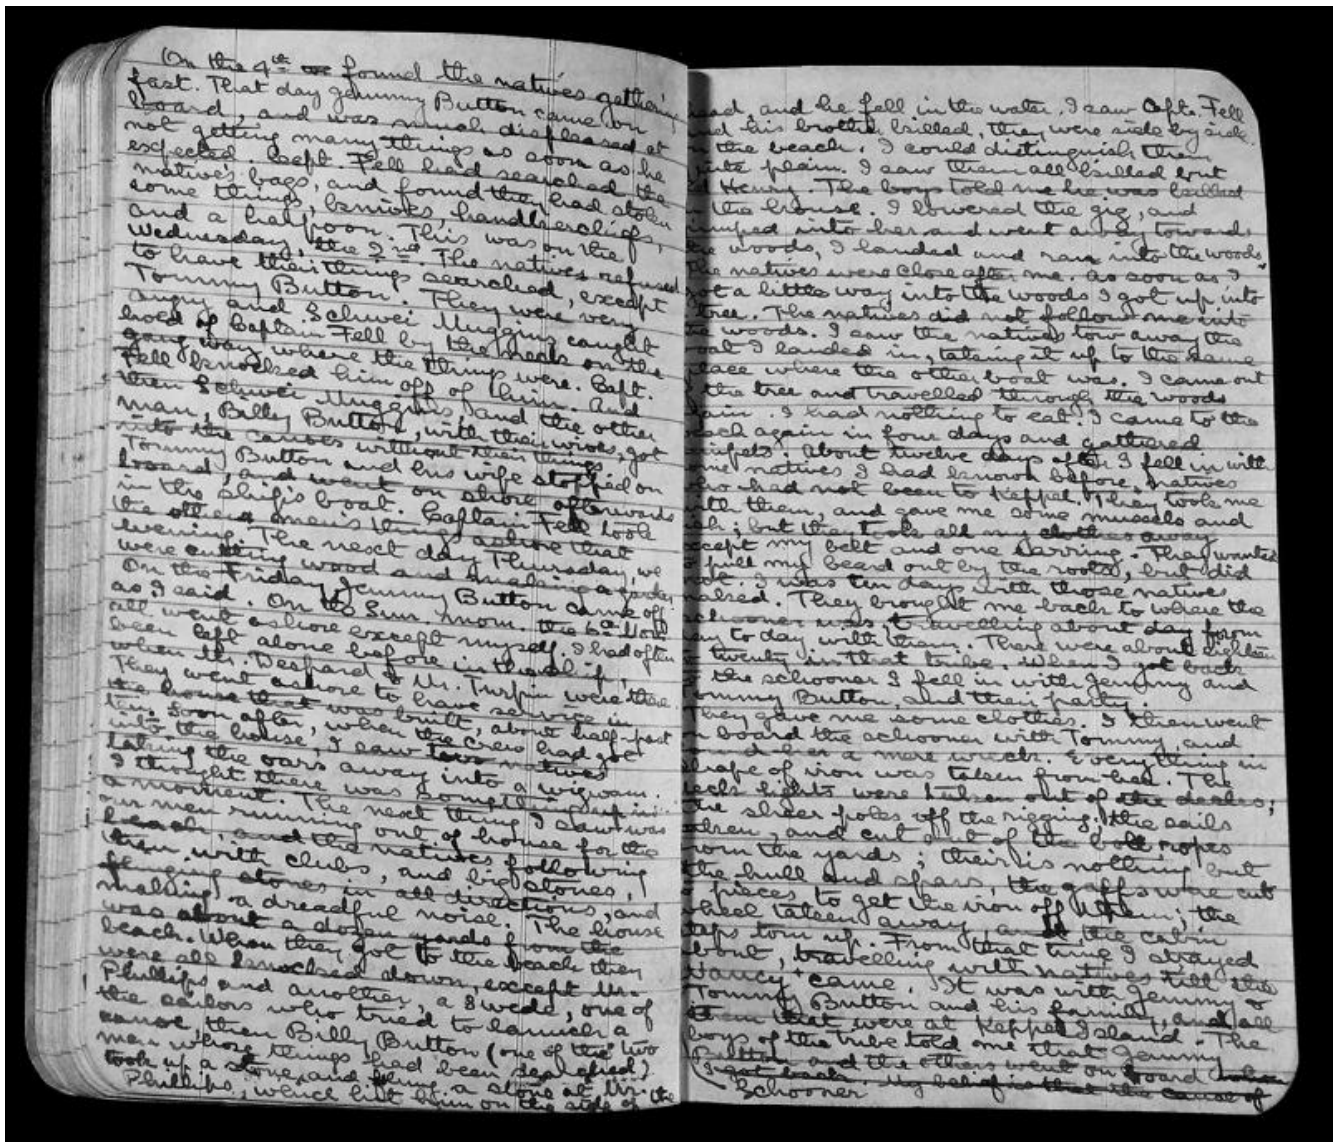 On the 4th we found the natives gathering
fast. That day Jemmy Button came on
board, and was much displeased at
not getting many things as soon as he
expected. Capt. Fell had searched the
natives bags, and found they had stolen
some things, knives, handkerchiefs,
and a harpoon. This was on the
Wednesday, the 2nd. The natives refused
to have their things searched, except
Tommy Button. They were very
angry and Schwei Muggins caught
hold of Captain Fell by the neck on the
gang way where the things were. Capt.
Fell knocked him off of him. And
then Schwei Muggins, and the other
man, Billy Button, with their wives, got
into the canoes without their things
Tommy Button and his wife stopped on
board, and went on shore afterwards
in the ship's boat. Captain Fell took
the other men's things ashore that
evening. The next day Thursday, we
were cutting wood and making a garden
On the Friday Jemmy Button came off
as I said. On the Sun. morn. the 6th Nov
all went ashore except myself. I had often
been left alone before in the ship,
when Mr. Despard & Mr. Turpin were there.
They went ashore to have service in
the house that was built, about half-past
ten. Soon after, when the crew had got
into the house, I saw two natives
taking the oars away into a wigwam.
I thought there was something up in
a moment. The next thing I saw was
our men running out of house for the
beach, and the natives following
them with clubs, and big stones,
flinging stones in all directions, and
making a dreadful noise. The house
was about a dozen yards from the
beach. When they got to the beach they
were all knocked down, except Mr.
Phillips and another, a Swede, one of
the sailors who tried to launch a
canoe, then Billy Button (one of the two
men whose things had been searched)
took up a stone, and flung a stone at Mr.
Phillips, which hit him on the side of the
head, and he fell in the water. I saw Capt. Fell
nd his brother killed, they were side by side
n the beach. I could distinguish them
uite plain. I saw them all killed but
d Henry. The boys told me he was killed
n the house. I lowered the gig, and
umped into her and went away towards
he woods, I landed and ran into the woods,
The natives were close after me. As soon as I
got a little way into the woods I got up into
tree. The natives did not follow me into
he woods. I saw the natives tow away the
oat I landed in, taking it up to the same
lace where the other boat was. I came out
f the tree and travelled through the woods
gain. I had nothing to eat. I came to the
each again in four days and gathered
impets. About twelve days after I fell in with
ome natives I had known before, natives
ho had not been to Keppel, they took me
ith them, and gave me some mussels and
sh; but they took all my clothes away
xcept my belt and one earring. They wanted
o pull my beard out by the roots, but did
not. I was ten days with those natives
naked. They brought me back to where the
schooner was, travelling about day from
ay to day with them. There were about eighteen
r twenty in that tribe. When I got back
o the schooner I fell in with Jemmy and
ommy Button, and their party.
They gave me some clothes. I then went
n board the schooner with Tommy, and
ound her a mere wreck. Everything in
shape of iron was taken from her. The
deck lights were taken out of the decks;
the sheer poles off the rigging; the sails
taken, and cut out of the bolt ropes
rom the yards; their is nothing but
the hull and spars, the gaffs were cut
o pieces to get the iron off them; the
wheel taken away, and the cabin
taps torn up. From that time I strayed
bout, travelling with natives till the
Nancy + came. It was with Jemmy &
Tommy Button and his family, and all
them that were at Keppel Island. The
boys of the tribe told me that Jemmy
Button and the others went on board when
(I got back. My belief is that the cause of
Schooner